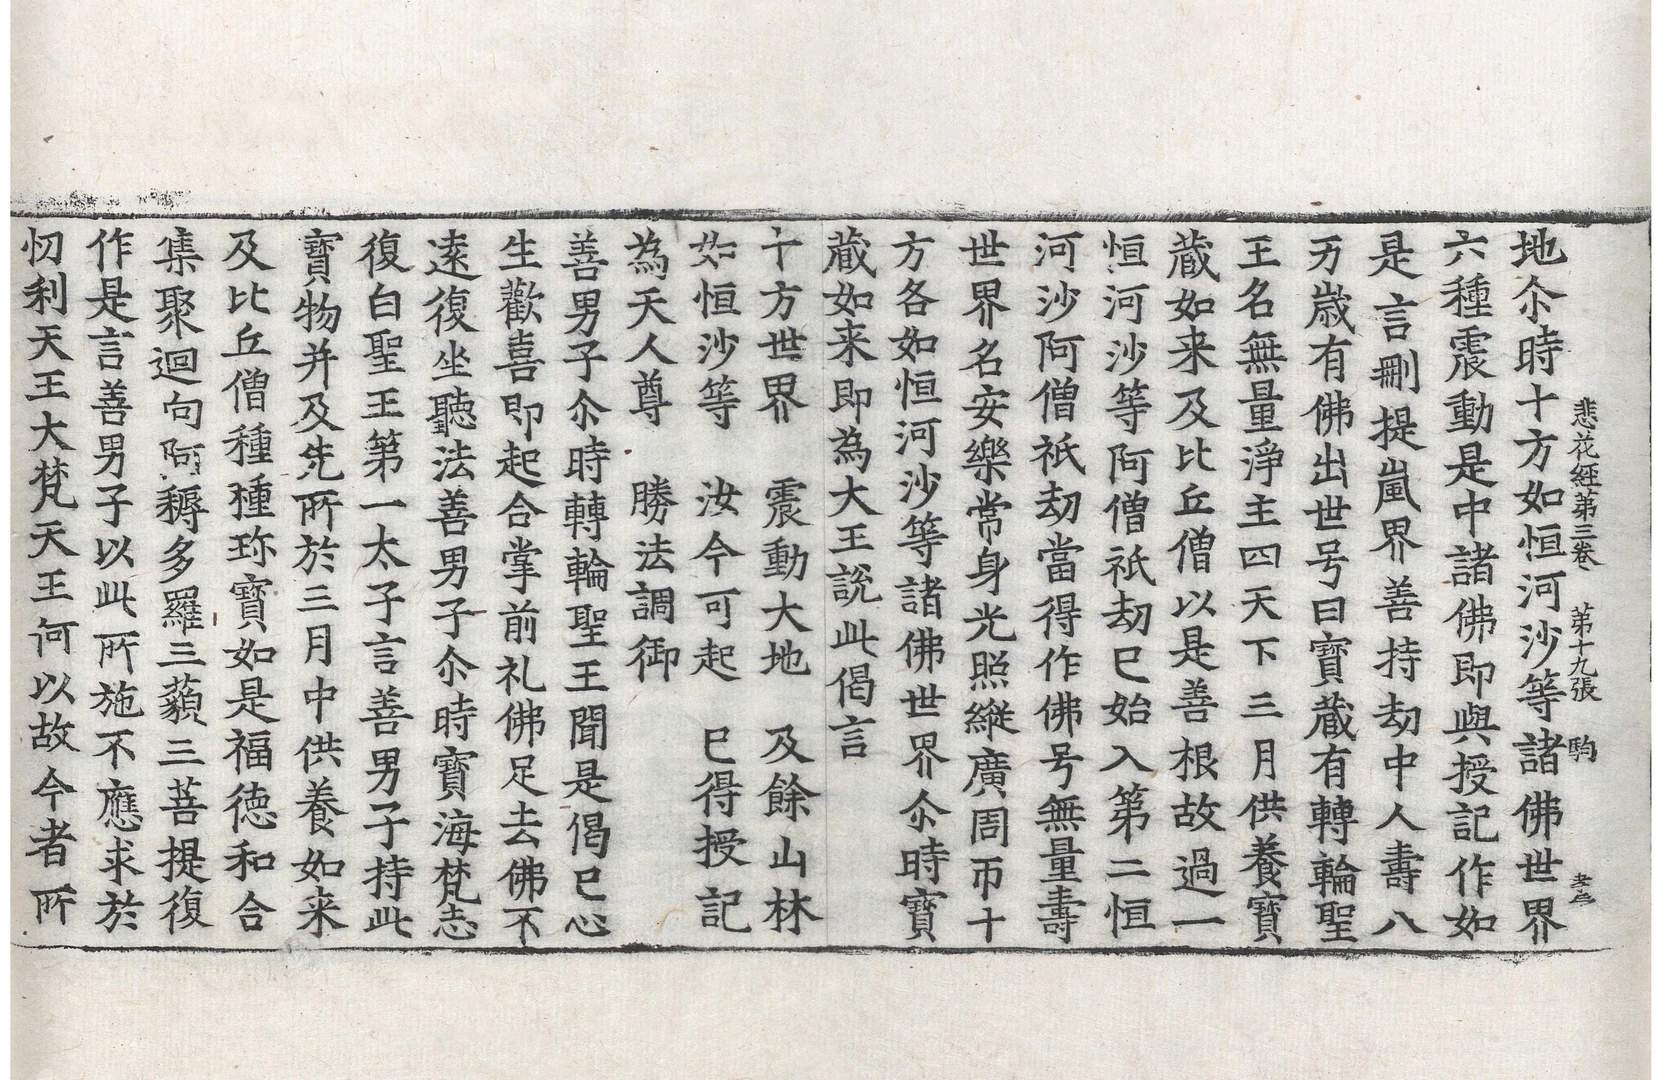 悲花経第三卷　第十九張　駒
地尒時十方如恒河沙等諸佛世界
六種震動是中諸佛即與授記作如
是言刪提嵐界善持劫中人壽八
万歳有佛出世号曰寶蔵有轉輪聖
王名無量淨主四天下三月供養寶
蔵如来及比丘僧以是善根故過一
恒河沙等阿僧祇劫已始入第二恒
河沙阿僧祇劫當得作佛号無量壽
世界名安樂常身光照縱廣周帀十
方各如恒河沙等諸佛世界尒時寶
蔵如来即為大王說此偈言
十方世界　震動大地　及餘山林
如恒沙等　汝今可起　已得授記
為天人尊　勝法調御
善男子尒時轉輪聖王聞是偈已心
生歡喜即起合掌前礼佛足去佛不
遠復坐聽法善男子尒時寶海梵志
復白聖王第一太子言善男子持此
寶物并及先所於三月中供養如来
及比丘僧種種珎寶如是福徳和合
集聚迴向阿耨多羅三藐三菩提復
作是言善男子以此所施不應求於
忉利天王大梵天王何以故今者所